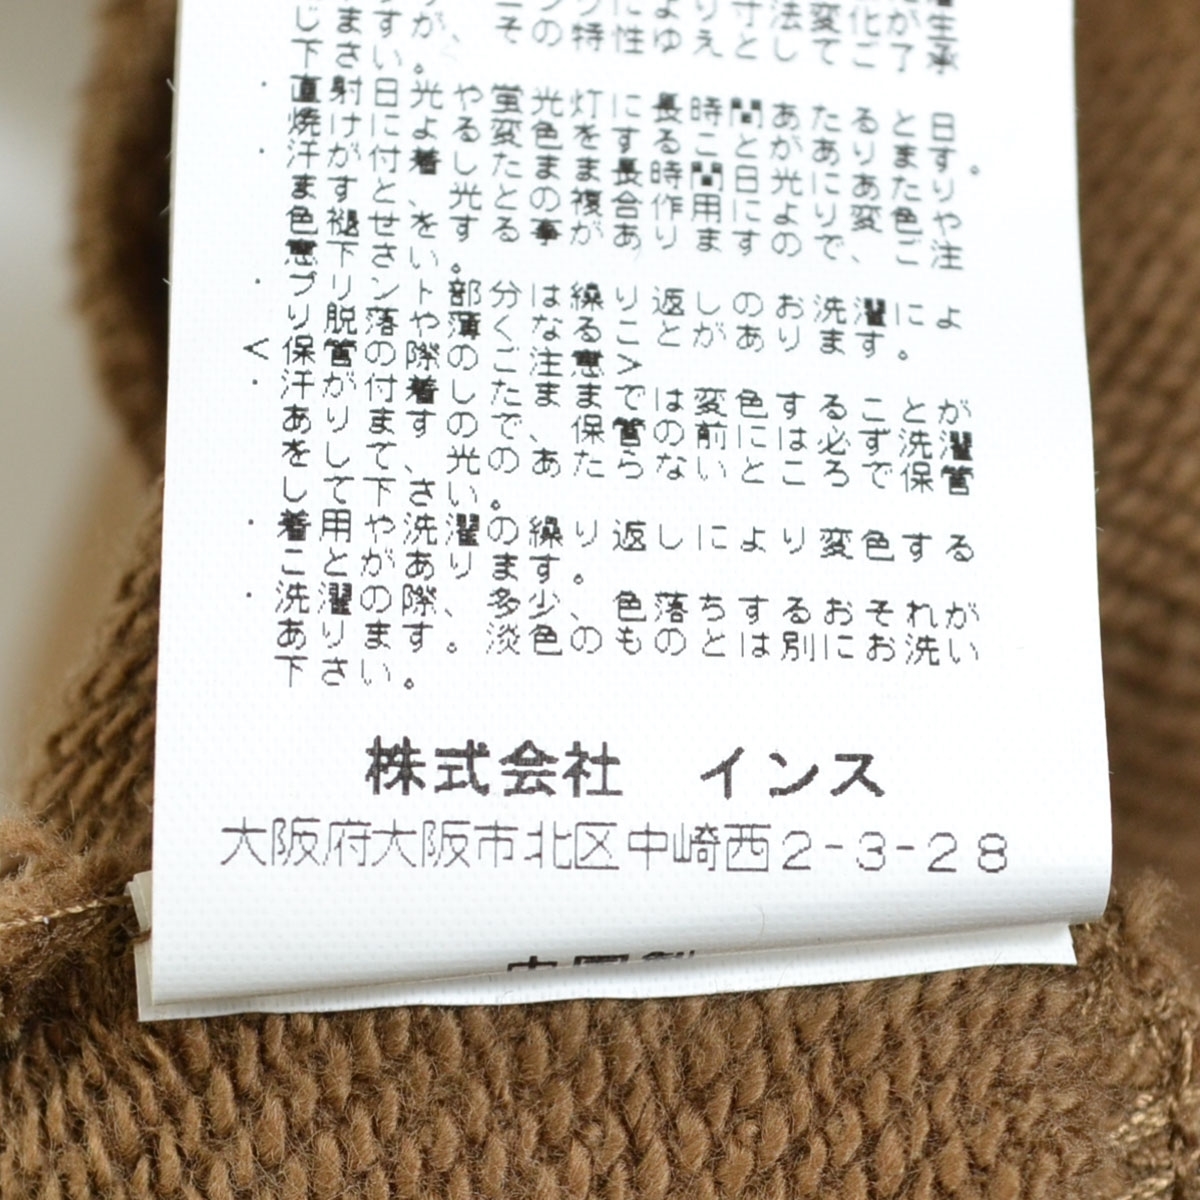 によ り寸法変化が生
じますが、その特性ゆえとしてご了承
下さい。
・直射日光や蛍光灯に長時間あたると日
焼けによる変色をすることがあります。
・汗が付着したまま長時間日光にあたり
ますと、光との複合作用により変色や
色褪せをする事がありますので、ご注
意下さい。
・プリント部分は繰り返しのお洗濯によ
り脱落や薄くなることがあります。
<保管の際のご注意>
・汗が付着したままでは変色することが
ありますので、保管前には必ず洗濯
をして、光のあたらないところで保管
して下さい。
・着用や洗濯の繰り返しにより変色する
ことがあります。
・洗濯の際、多少、色落ちするおそれが
あります。淡色のものとは別にお洗い
下さい。
株式会社 インス
大阪府大阪市北区中崎西2-3-28
中国製